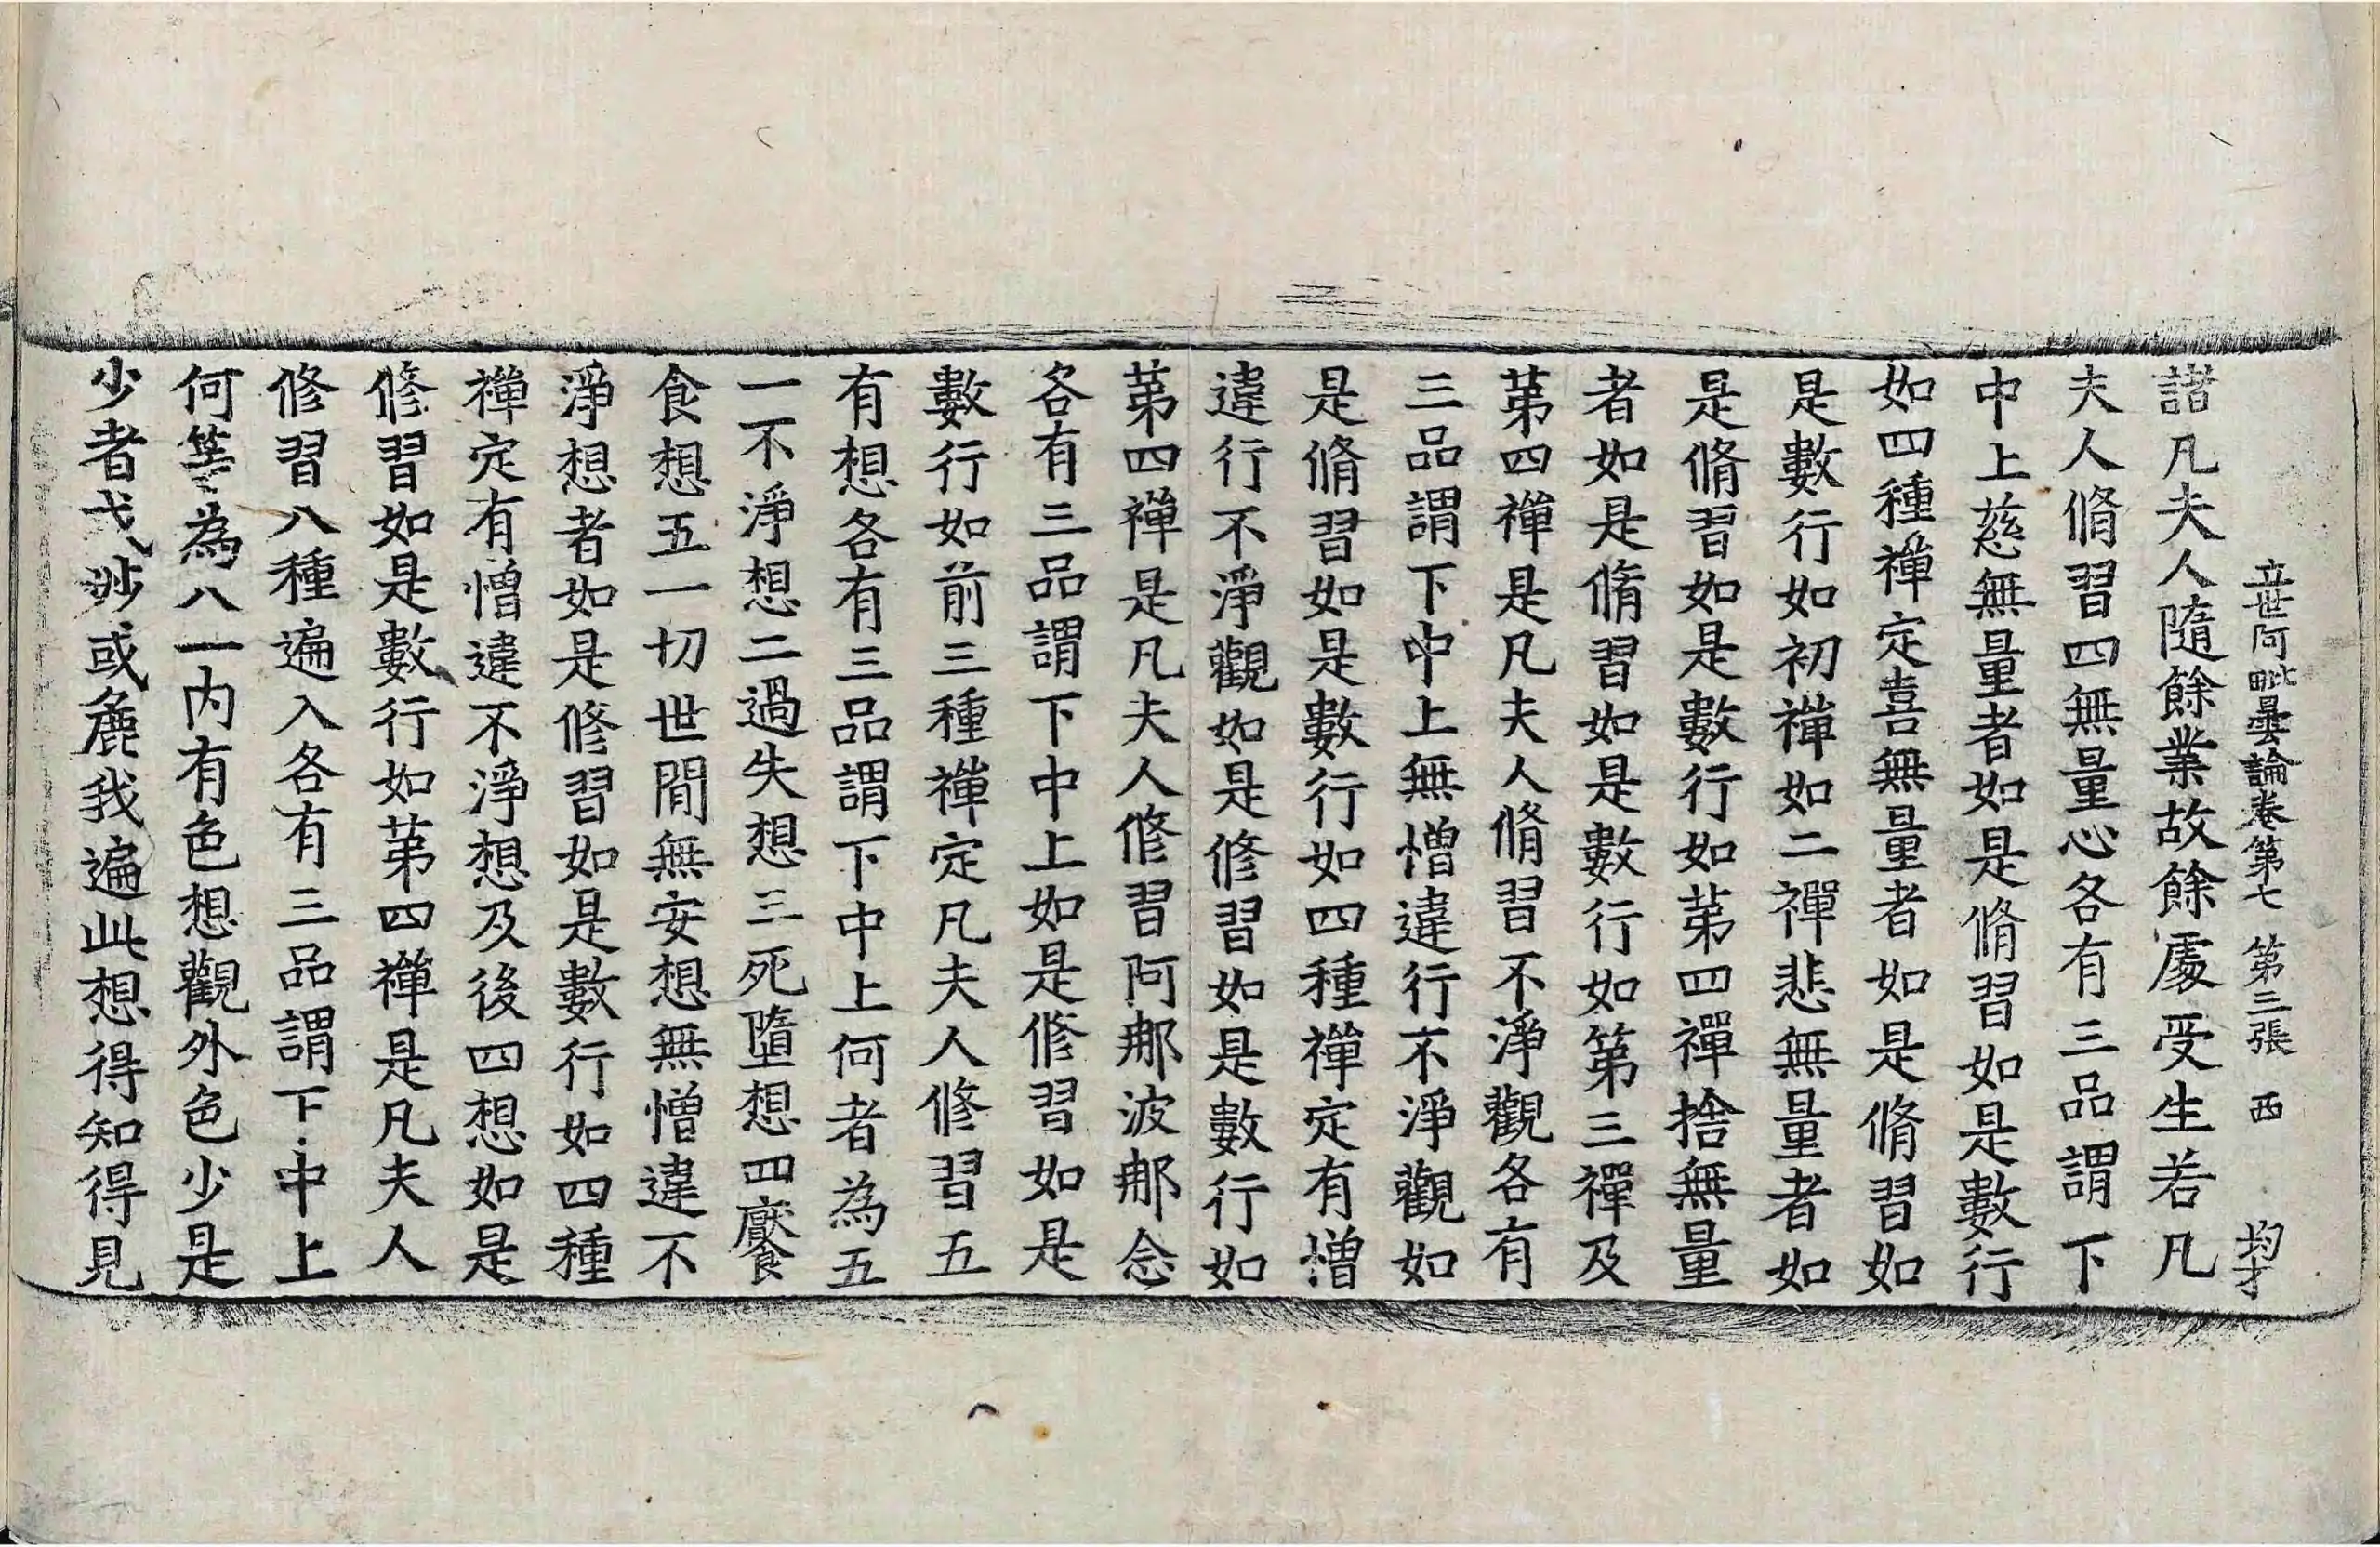 立世阿毗曇論卷第七 第三張 西 均才
諸凡夫人隨餘業故餘處受生若凡
夫人脩習四無量心各有三品謂下
中上慈無量者如是脩習如是數行
如四種禅定喜無量者如是脩習如
是數行如初禅如二禪悲無量者如
是脩習如是數行如苐四禪捨無量
者如是脩習如是數行如第三禪及
苐四禅是凡夫人脩習不淨觀各有
三品謂下中上無憎違行不淨觀如
是脩習如是數行如四種禅定有憎
違行不淨觀如是修習如是數行如
苐四禅是凡夫人修習阿那波那念
各有三品謂下中上如是修習如是
數行如前三種禅定凡夫人修習五
有想各有三品謂下中上何者為五
一不淨想二過失想三死墮想四厭食
食想五一切世間無安想無憎違不
淨想者如是修習如是數行如四種
禅定有憎違不淨想及後四想如是
修習如是數行如苐四禅是凡夫人
修習八種遍入各有三品謂下中上
何等為八一内有色想觀外色少是
少者或妙或麁我遍此想得知得見